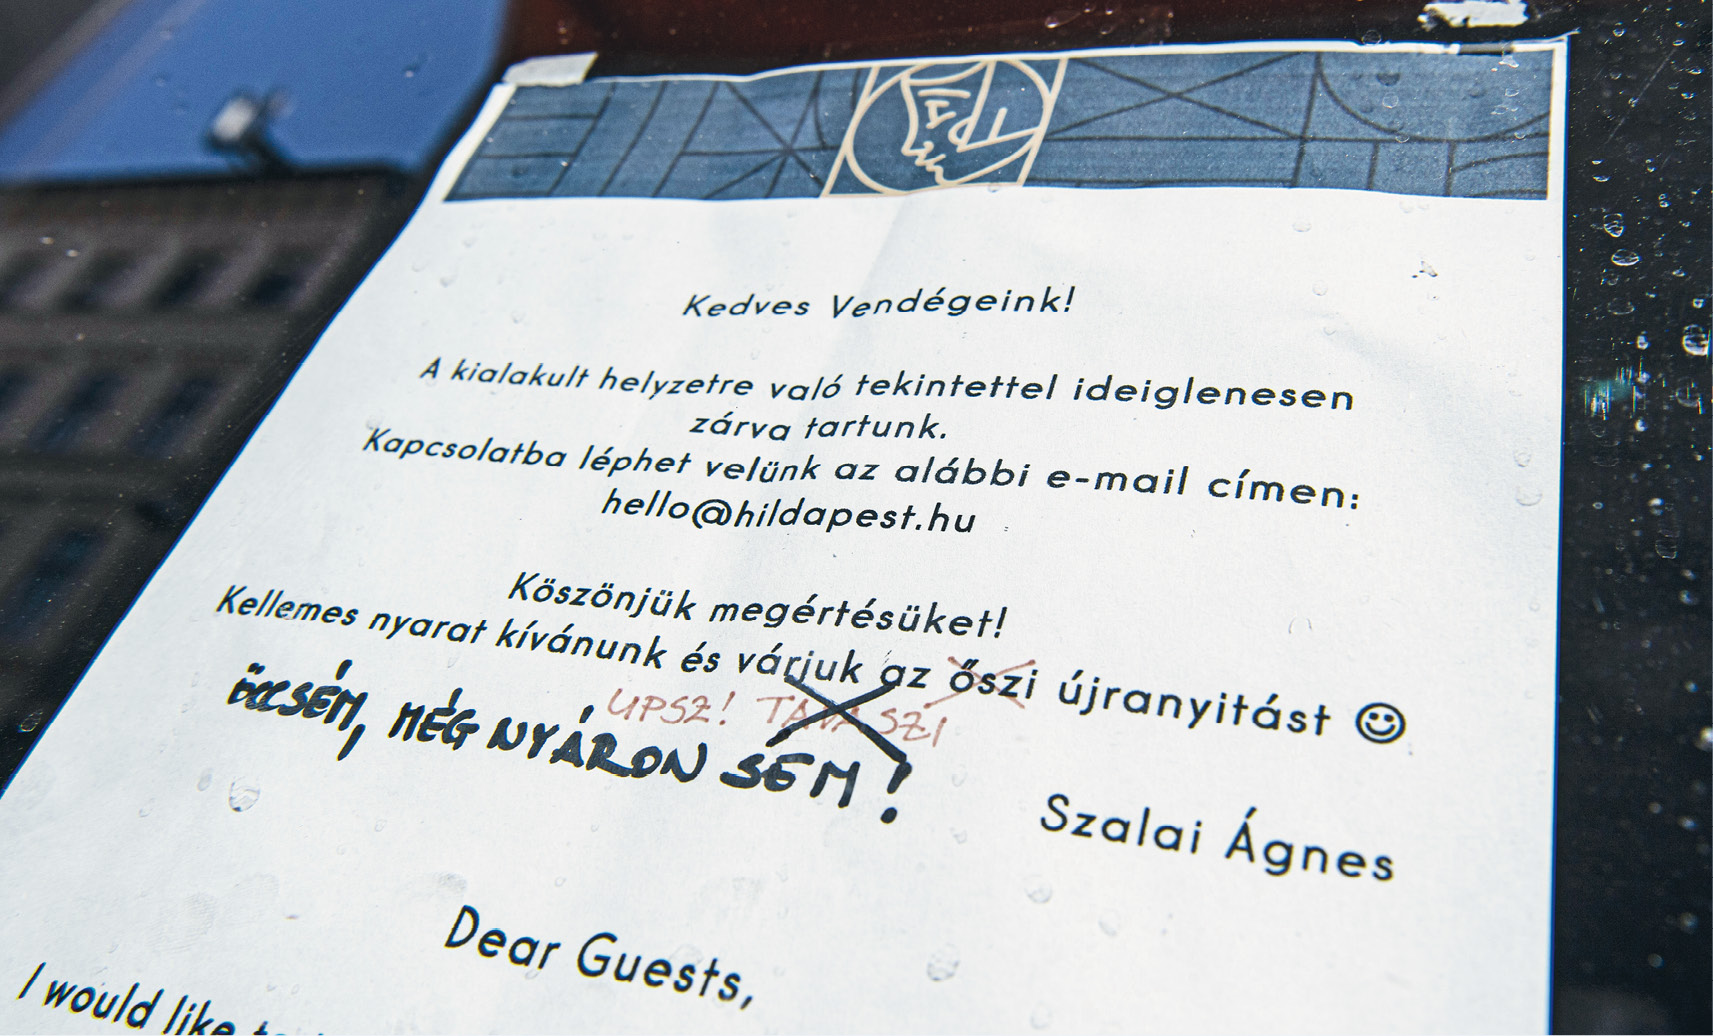 Kedves Vendégeink!
A kialakult helyzetre való tekintettel ideiglenesen
zárva tartunk.
Kapcsolatba léphet velünk az alábbi e-mail címen:
hello@hildapest.hu
Köszönjük megértésüket!
Kellemes nyarat kívánunk és várjuk az őszi újranyitást ☺
UPSZ! TAVASZI
ÖCSÉM, MÉG NYÁRON SEM!
Szalai Ágnes
Dear Guests,
I would like